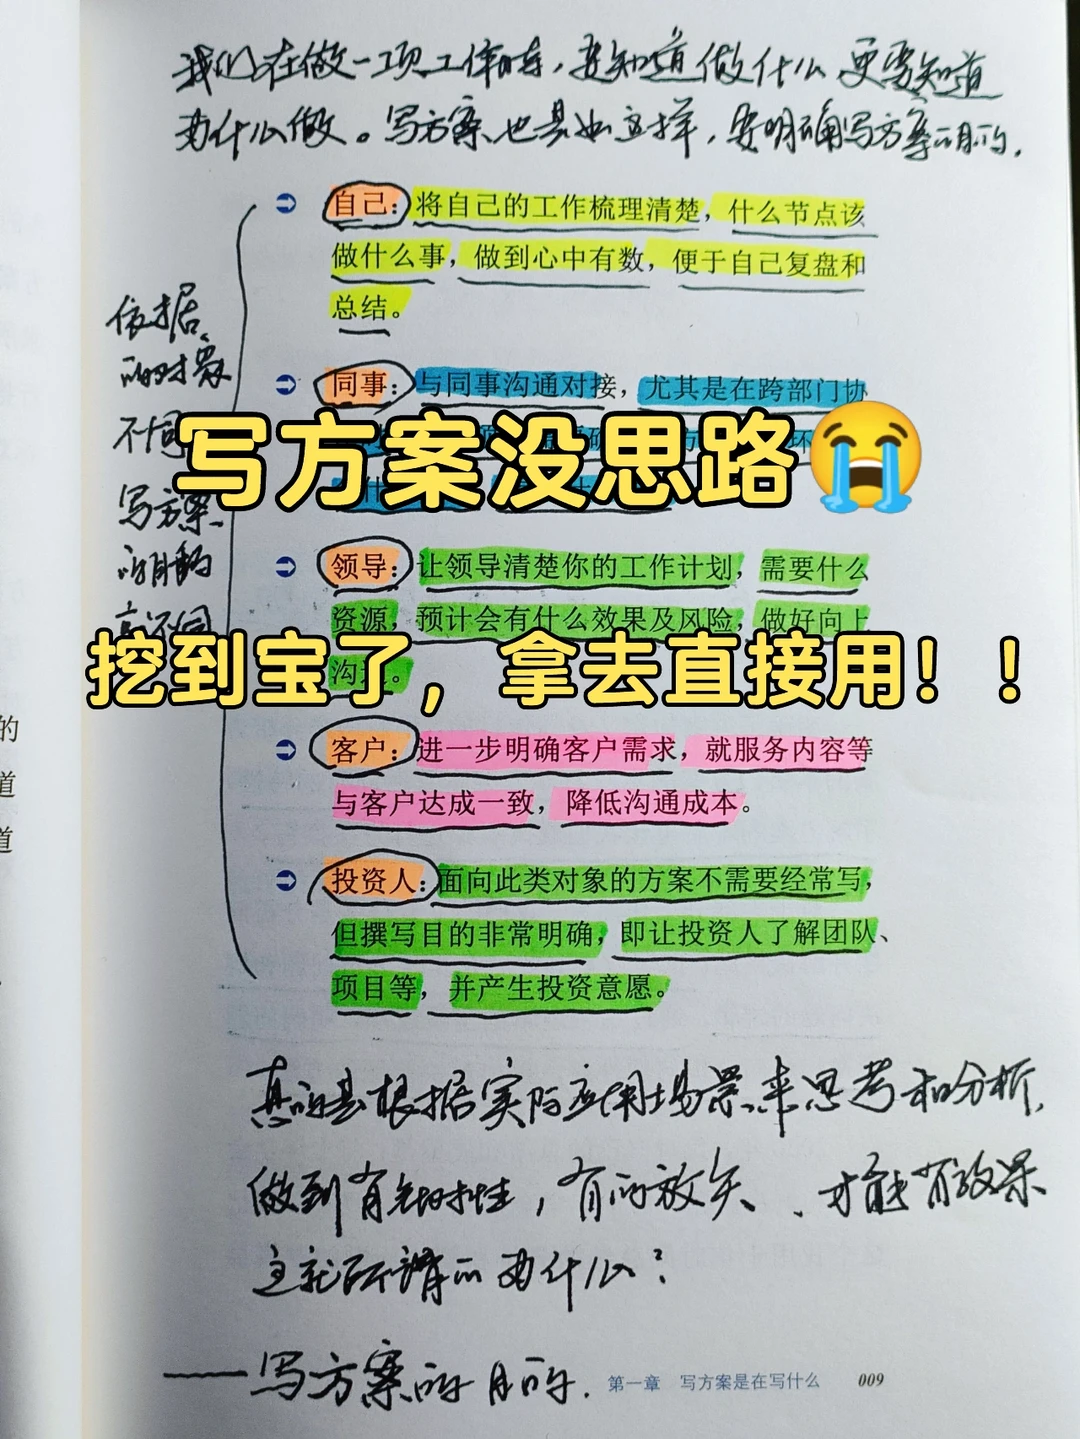 我们在做一项工作时，要知道做什么更要知道
为什么做。写方案也是如这样，要明确写方案的目的.
自己：将自己的工作梳理清楚，什么节点该
做什么事，做到心中有数，便于自己复盘和
总结。
依据
的对象
不同
写方案
的目的
同事：与同事沟通对接，尤其是在跨部门协
写方案没思路😭
领导：让领导清楚你的工作计划，需要什么
资源，预计会有什么效果及风险，做好向上
沟
挖到宝了，拿去直接用！！
客户：进一步明确客户需求，就服务内容等
与客户达成一致，降低沟通成本。
投资人：面向此类对象的方案不需要经常写，
但撰写目的非常明确，即让投资人了解团队、
项目等，并产生投资意愿。
的
道
道
真的是根据实际应用场景来思考和分析.
做到有针对性，有的放矢、才能有效果
这就是所谓的为什么？
——写方案的目的.
第一章 写方案是在写什么 009